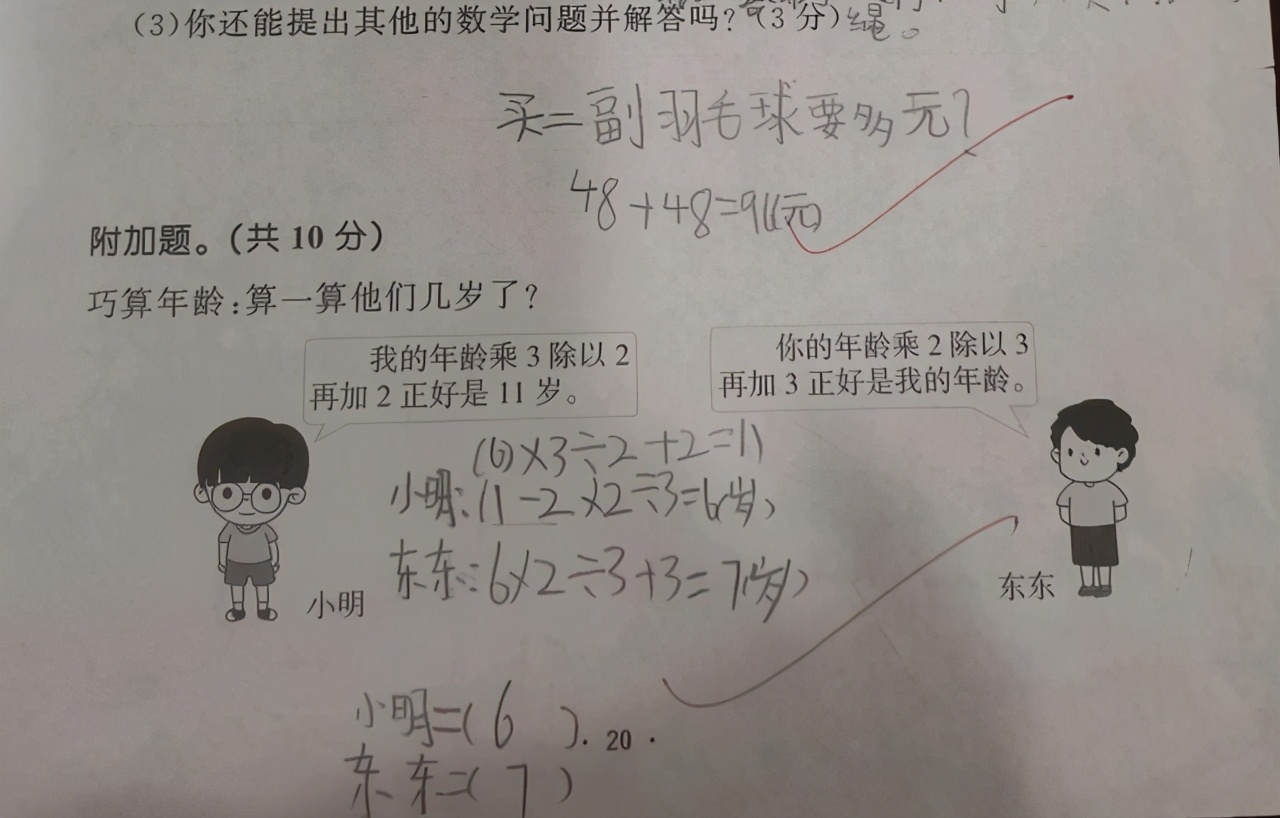 (3)你还能提出其他的数学问题并解答吗?(3分)
绳。
买二副羽毛球要多元?
48+48=96(元)
附加题。(共10分)
巧算年龄:算一算他们几岁了?
我的年龄乘3除以2
再加2正好是11岁。
你的年龄乘2除以3
再加3正好是我的年龄。
(6)×3÷2+2=11
小明:11-2×2÷3=6(岁)
东东:6×2÷3+3=7(岁)
小明
东东
小明=(6)
· 20 ·
东东=(7)